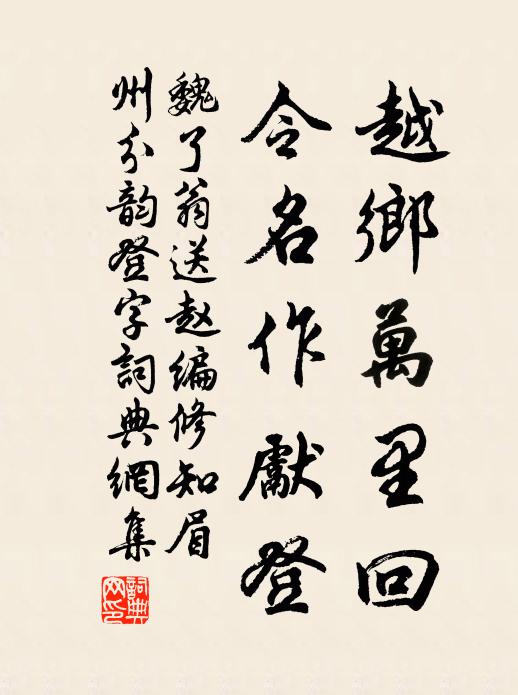 越鄉萬里回
令名作獻登
魏了翁送赵编修知眉
州分韵登字詞典網集